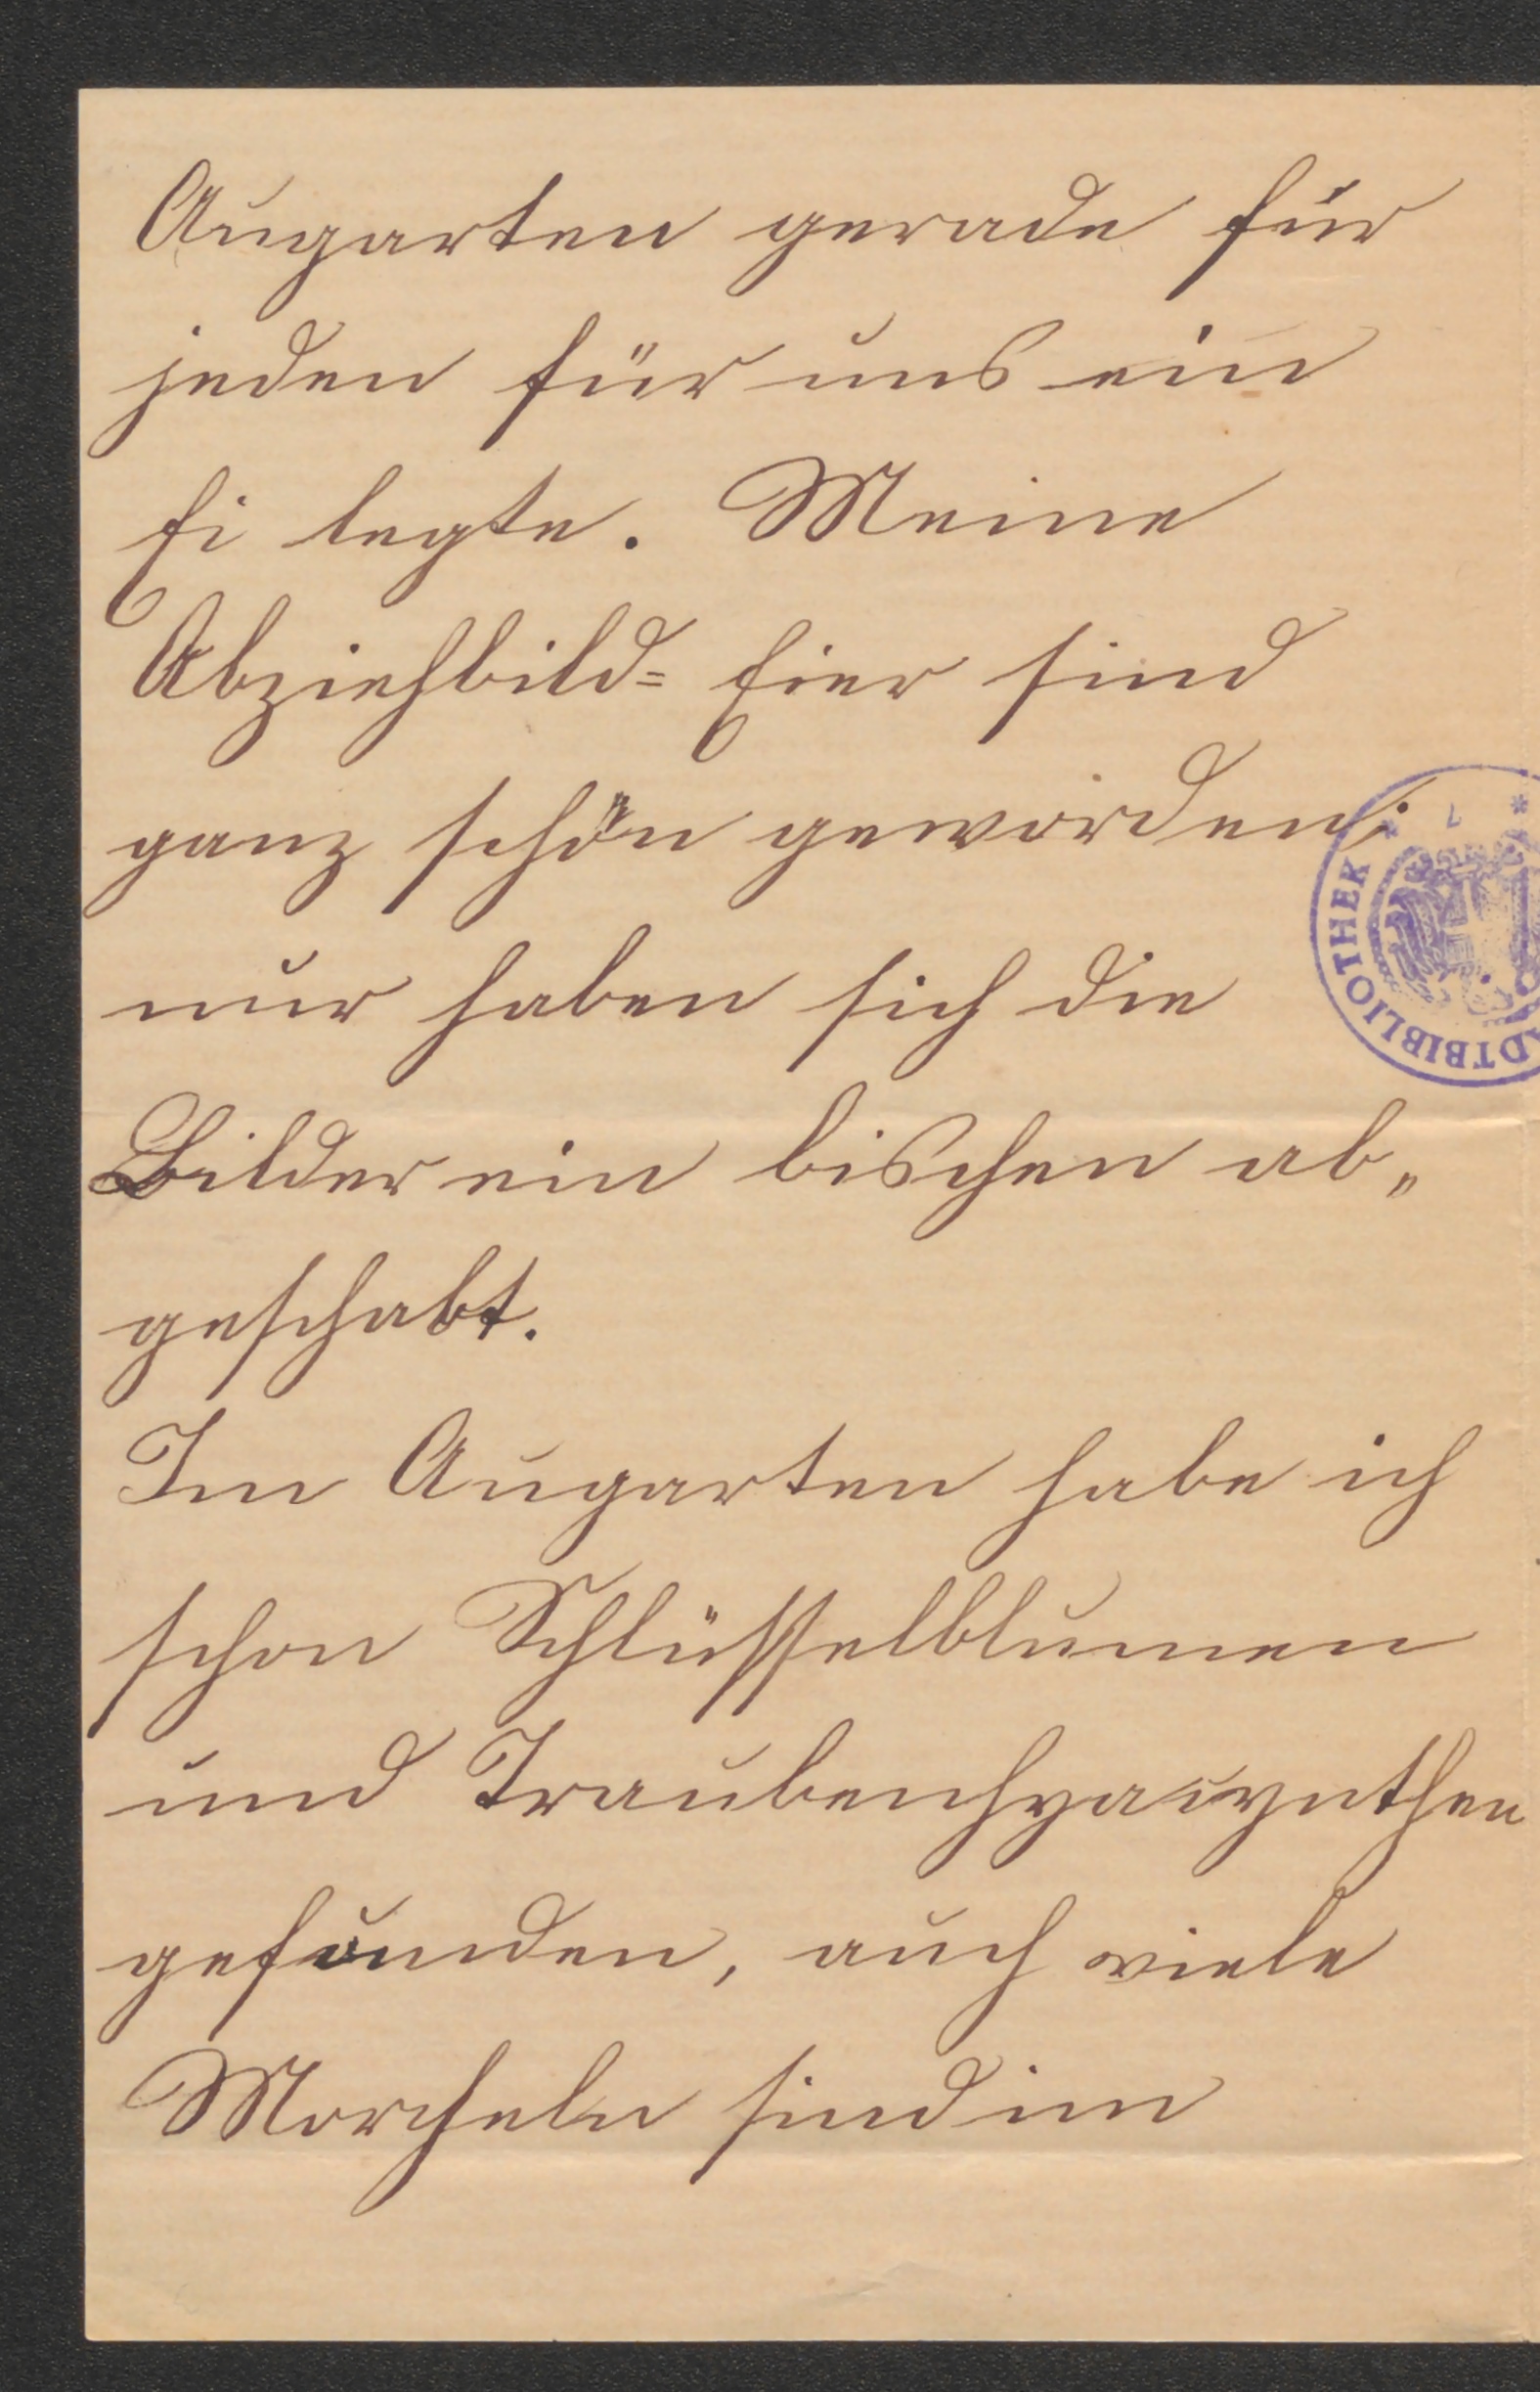 Augarten gerade für
jeden für uns ein
Ei legte. Meine
Abziehbild= Eier sind
ganz schön geworden;
nur haben sich die
Bilder ein bischen ab„
geschabt.
Im Augarten habe ich
schon Schlüsselblumen
und Traubenhyacynthen
gefunden, auch viele
Morcheln sind im
DTBIBLIOTHEK